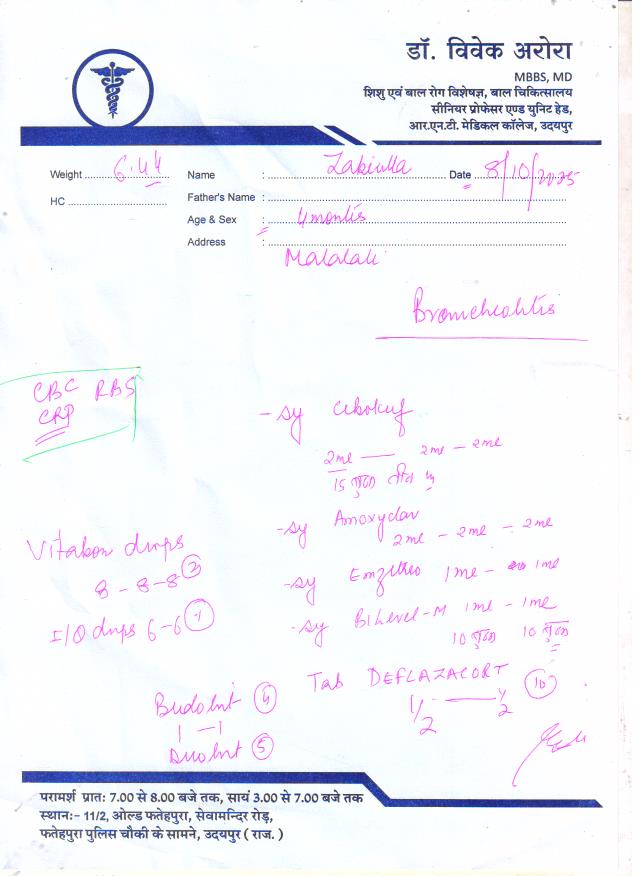 डॉ. विवेक अरोरा
MBBS, MD
शिशु एवं बाल रोग विशेषज्ञ, बाल चिकित्सालय
सीनियर प्रोफेसर एण्ड यूनिट हेड,
आर.एन.टी. मेडिकल कॉलेज, उदयपुर
Weight 6.44 Name : Date 8/10/2025
HC Father's Name :
Age & Sex : 4 months
Address :
Bronchiolitis
CBC RBS
CRP
- sy
2ml — 2ml - 2ml
15
- sy Amoxyclav
2ml - 2ml - 2ml
Vitabon drops
8-8-8
- sy 1ml - 1ml
- sy Bilevel-M 1ml - 1ml
drops 6-6
10 10
Tab DEFLAZACORT 10
1/2 — 1/2
Budolnt 4
1 - 1
Duolnt 5
परामर्श प्रातः 7.00 से 8.00 बजे तक, सायं 3.00 से 7.00 बजे तक
स्थानः- 11/2, ओल्ड फतेहपुरा, सेवामन्दिर रोड़,
फतेहपुरा पुलिस चौकी के सामने, उदयपुर ( राज. )